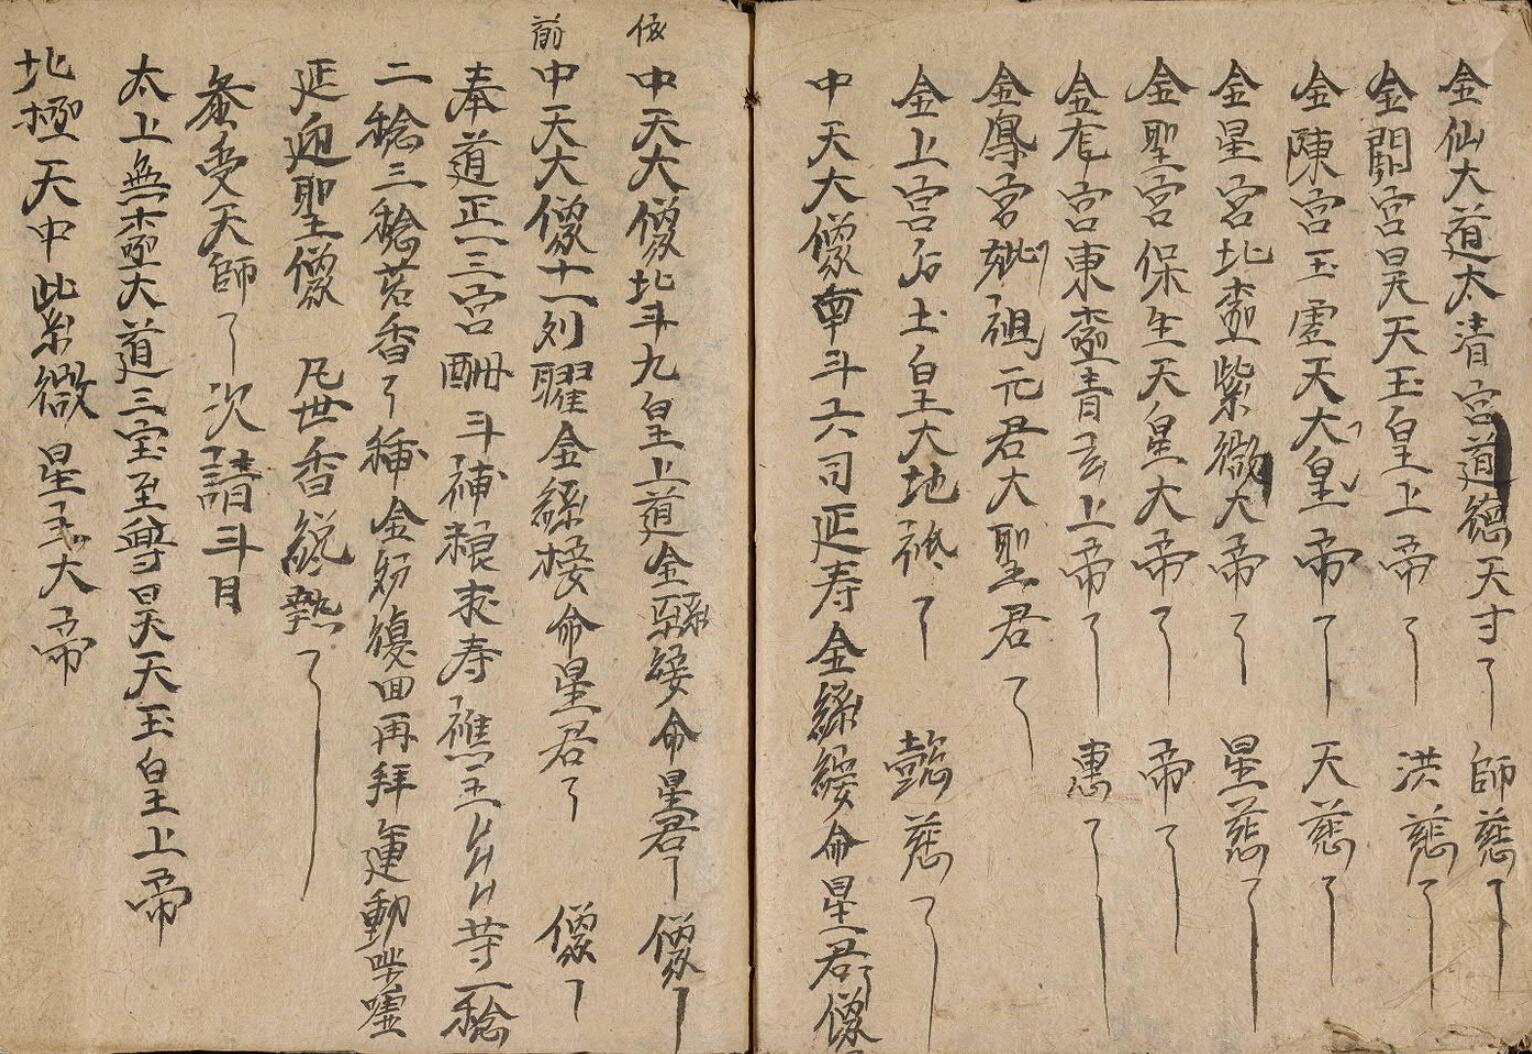 金仙大道太清宫道德天寸了 師慈了
金闕宫昊天玉皇上帝了 洪慈了
金陳宫玉虚天大皇帝了 天慈了
金星宫北極紫微大帝了 星慈了
金聖宫保生天皇大帝了 帝了
金宫東極青玄上帝了 惠了
金鳳宫祖元君大聖君了
金上宫后土皇大地祗了 懿慈了
中天大僊南斗六司延寿金絲綬命星君了僊
依
中天大僊北斗九皇上道金綬命星君了 僊了
前
中天大僊十一列曜金絲接命星君了 僊了
奉道正一三宫酬斗補粮求寿醮主ムムム等一稔
二稔三稔茗香了 金復回再拜運動
延迎聖僊 凡世香 熱了
受天師了 次請斗月
太上無極大道三宝至尊昊天玉皇上帝
北極天中紫微星主大帝